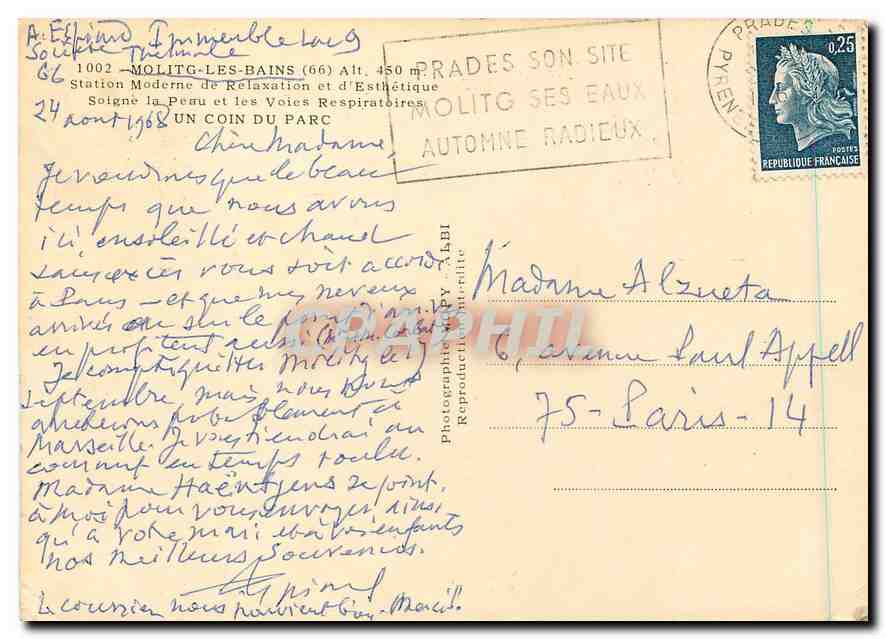 A. Espinas Immeuble Lac 9
Société Thermale
66
1002 - MOLITG-LES-BAINS (66) Alt. 450 m
Station Moderne de Relaxation et d'Esthétique
Soigne la Peau et les Voies Respiratoires
UN COIN DU PARC
24 aout 1968
PRADES SON SITE
MOLITG SES EAUX
AUTOMNE RADIEUX
PRADES
PYREN.
0,25
POSTES
REPUBLIQUE FRANÇAISE
Chère Madame,
Je voudrais que le beau
temps que nous avons
ici ensoleillé et chaud
sans excès vous soit accordé
à Paris - et que mes neveux
arrivés ou sur le point d'arriver
en profitent aussi
Je compte quitter Molitg le 19
septembre, mais nous nous
arrêterons probablement à
Marseille. Je vous tiendrai au
courant en temps voulu.
Madame Haëntjens se joint
à moi pour vous envoyer ainsi
qu'à votre mari et à vos enfants
nos meilleurs souvenirs.
Le courrier nous parvient bien - Merci!
Photographie APPY - ALBI
Reproduction interdite
Madame Alzueta
6, avenue Paul Appell
75-Paris-14
CPAPHIL